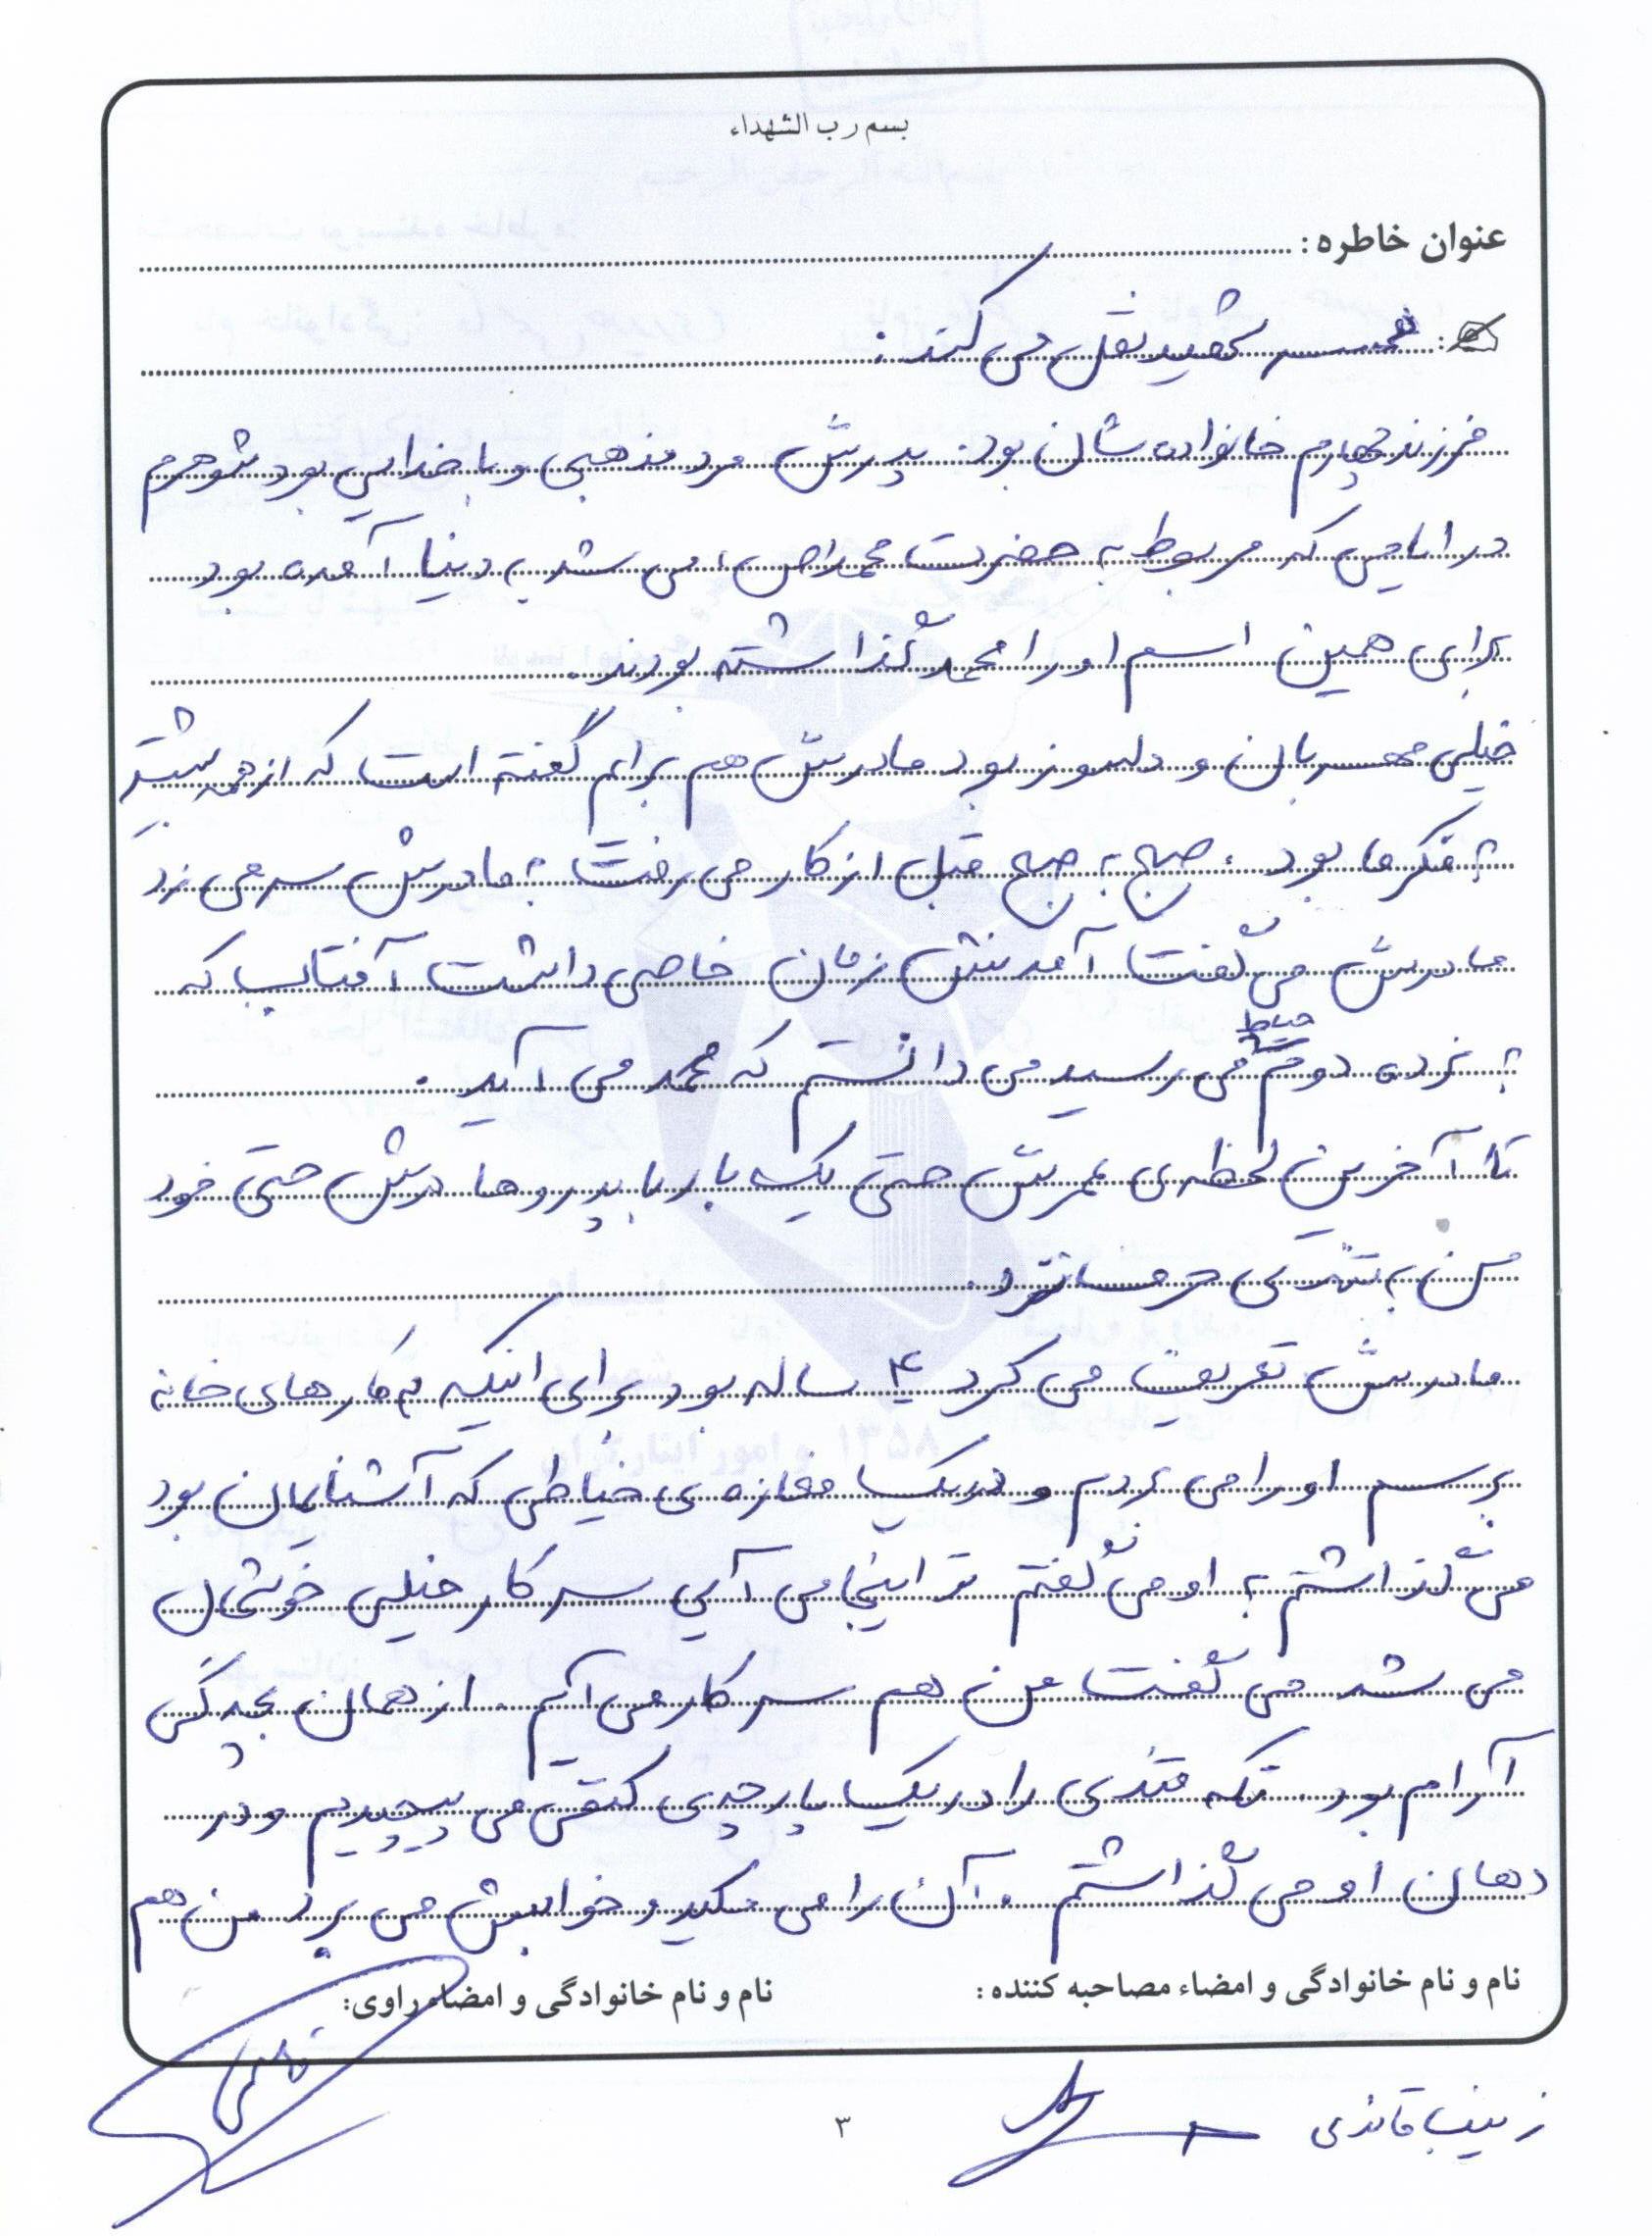 بسم رب الشهداء
عنوان خاطره :
همسر شهید نقل می کند :
فرزند چهارم خانواده شان بود. پدرش مرد مذهبی و با خدایی بود شوهرم
در ایامی که مربوط به حضرت محمد (ص) می شد به دنیا آمده بود
برای همین اسم او را محمد گذاشته بودند.
خیلی مهربان و دلسوز بود مادرش هم برایم گفته است که از همه بیشتر
به فکر ما بود . صبح به صبح قبل از کار می رفت به مادرش سر می زد
مادرش می گفت آمدنش زمان خاصی داشت آفتاب که
به نرده دوم حیاط می رسید می دانستم که محمد می آید .
تا آخرین لحظه ی عمرش حتی یک بار با پدر و مادرش حتی خود
من به تندی حرف نزد.
مادرش تعریف می کرد ۴ ساله بود برای اینکه به کارهای خانه
برسم او را می بردم و در یک مغازه ی خیاطی که آشنایمان بود
می گذاشتم به او می گفتم تو اینجا می آیی سر کار خیلی خوشحال
می شد می گفت من هم سر کار می آیم . از همان بچه گی
آرام بود. تکه قندی را در یک پارچه ی می پیچیدیم و در
دهان او می گذاشتم . آن را می مکید و خوابش می برد من هم
نام و نام خانوادگی و امضاء مصاحبه کننده :
نام و نام خانوادگی و امضاء راوی:
زینب قائدی
۳